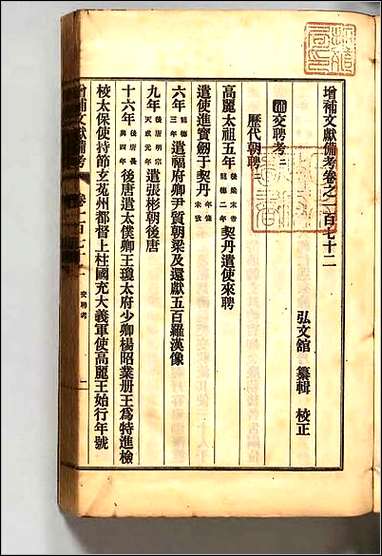 增補文獻備考卷之一百七十二
弘文館 纂輯 校正
補交聘考二
歷代朝聘二
高麗太祖五年後梁末帝龍德二年契丹遣使來聘
遣使進寶劍于契丹年條未攷
六年龍德三年遣福府卿尹質朝梁及還獻五百羅漢像
九年後唐明宗天成元年遣張彬朝後唐
十六年後唐長興四年後唐遣太僕卿王瓊太府少卿楊昭業册王爲特進檢
校太保使持節玄菟州都督上柱國充大義軍使高麗王始行年號
增補文獻備考 卷一百七十二 交聘考 一